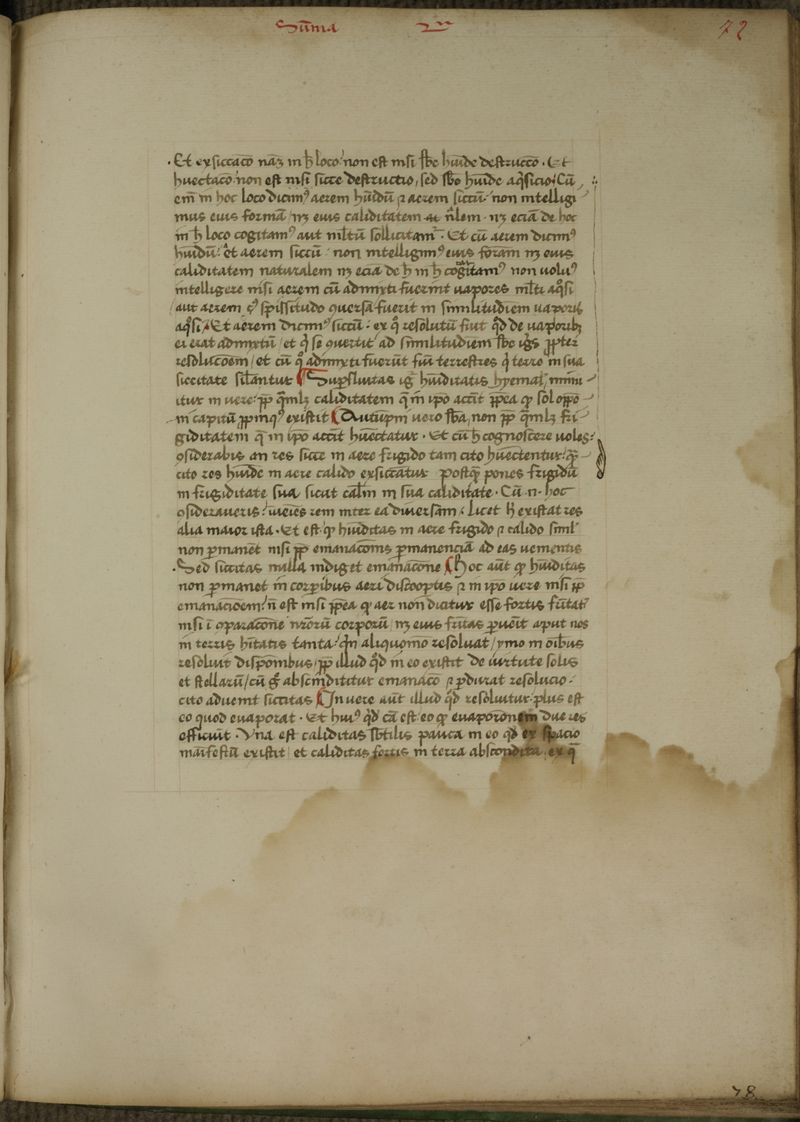 Sūma 2ᵃ 72
· Et exsiccaco naȝ in ħ loco non est nisi sbe huīde destructō · Et
huectaco non est nisi sicce destructio, sed sbe huīde aq̄sicio Cū
em in hoc loco dicimꝰ aerem huīdū ⁊ aerem siccū non intelligi
mus eius formā nȝ eius caliditatem nłem · nȝ eciā de hoc
in ħ loco cogitamꝰ aut mltū sollicitamᷣ Et cū aerem dicimꝰ
huīdū et aerem siccū non intelligimꝰ eius formam nȝ eius
caliditatem naturalem nȝ eciā de ħ in ħ cogitamꝰ non uoluꝰ
intelligere nisi aerem cū admixti fuerint uapores mlti aq̄si
aut aerem spissitudo ꝯuersa fuerit in similitudinem uaporis
aq̄si Et aerem dicimꝰ siccū ex q̊ resolutū fiut qd de uaporibȝ
ei erat admixtū et q̊ se ꝯuertit ad similitudinem sbe igs ꝓpter
resolucoem et cū q̊ admixti fuerūt fumi terrestres q̊ terre in sua
siccitate silantur Suꝑfluitas ig huīditatis hyemal minu
itur in uere ꝓp caliditatem q̄ in ipo accit ꝓpea q sol
in capitū ꝓpinqꝰ existit Autūpni uero sba, non ꝓp fri
giditatem q̄ in ipo accit huectatur · Et cū ħ cognoscere uoles
ꝯsiderabis an res sicce in aere frigido tam cito huectentur q̄
cito res huīde in aere calido exsiccātur postq̄ pones frigidū
in frigiditate sua sicut calm in sua caliditate · Cū .n. hoc
ꝯsideraueris inuēies rem inter ea diuersam licet ħ existat res
alia maior ista · Et est q huīditas in aere frigido ⁊ calido simł
non ꝑmanet nisi ꝓp emanacōnis ꝑmanenciā ad eas uementis
· Sed siccitas nulla indiget emanacōne Hoc aūt q huīditas
non ꝑmanet in corꝑibus aeri discooptis ⁊ in ipo uere nisi ꝓp
emanacioem n̄ est nisi ꝓpea q aer non dicitur esse fortis
nisi ī ꝯparacōne nr̄orū corporū nȝ eius ꝑuēit aput nos
in terris hītatis tanta qn aliquomo resoluat ymo in oībus
resoluit disponibus ꝓp illud qd in eo existit de uirtute solis
et stellarū cū g̊ abscindititur emanaco ⁊ ꝑdurat resolucio
cito aduenit siccitas In uere aūt illud qd resoluitur plus est
eo quod euaporat · Et huiꝰ qd cā est eo q euaporōnem due res
efficiuit · Vna est caliditas sbtilis pauca in eo qd ex spacio
manifestū existit et caliditas fortis in terra abscondita ex q̄
78